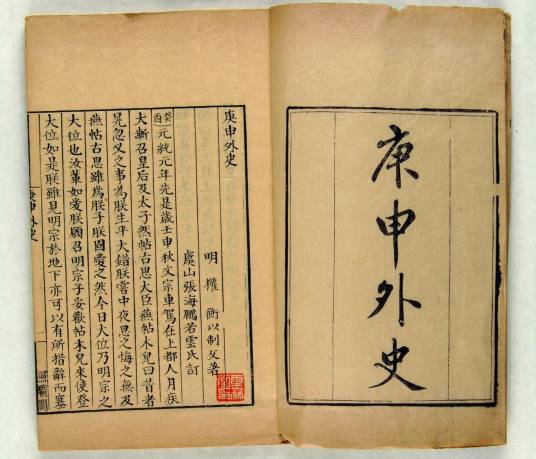 庚申外史
庚申外史
明 權 衡以制父著
虞山張海鵬若雲氏訂
癸酉元統元年先是歲壬申秋文宗車駕在上都八月疾
大漸召皇后及太子燕帖古思大臣燕帖木兒曰昔者
晃忽叉之事為朕生平大錯朕嘗中夜思之悔之無及
燕帖古思雖為朕子朕固愛之然今日大位乃明宗之
大位也汝輩如愛朕願召明宗子妥歡帖木兒來使登
大位如是朕雖見明宗於地下亦可以有所措辭而塞
庚申外史